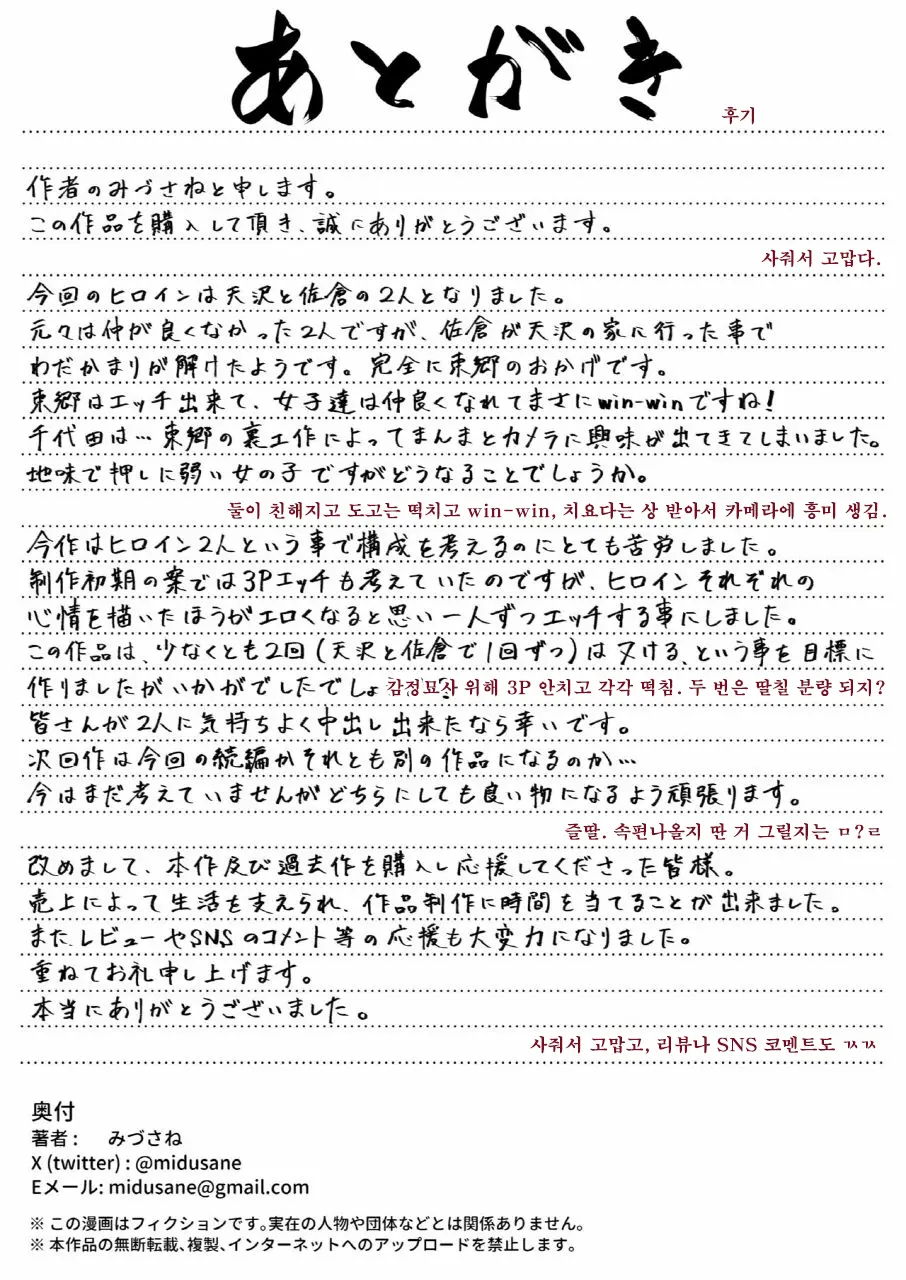 あとがき
후기
作者のみづさねと申します。
この作品を購入して頂き、誠にありがとうございます。
사줘서 고맙다.
今回のヒロインは天沢と佐倉の2人となりました。
元々は仲が良くなかった2人ですが、佐倉が天沢の家に行った事で
わだかまりが解けたようです。完全に東郷のおかげです。
東郷はエッチ出来て、女子達は仲良くなれてまさにwin-winですね!
千代田は…東郷の裏工作によってまんまとカメラに興味が出てきてしまいました。
地味で押しに弱い女の子ですがどうなることでしょうか。
둘이 친해지고 도고는 떡치고 win-win, 치요다는 상 받아서 카메라에 흥미 생김.
今作はヒロイン2人という事で構成を考えるのにとても苦労しました。
制作初期の案では3Pエッチも考えていたのですが、ヒロインそれぞれの
心情を描いたほうがエロくなると思い一人ずつエッチする事にしました。
この作品は、少なくとも2回(天沢と佐倉で1回ずつ)は ヌける、という事を目標に
作りましたがいかがでしたでしょ
감정묘사 위해 3P 안치고 각각 떡침. 두 번은 딸칠 분량 되지?
皆さんが2人に気持ちよく中出し出来たなら幸いです。
次回作は今回の続編かそれとも別の作品になるのか…
今はまだ考えていませんがどちらにしても良い物になるよう頑張ります。
즐딸. 속편나올지 딴 거 그릴지는 ㅁ?ㄹ
改めまして、本作及び過去作を購入し応援してくださった皆様。
売上によって生活を支えられ、作品制作に時間を当てることが出来ました。
また、レビューやSNSのコメント等の応援も大変力になりました。
重ねてお礼申し上げます。
本当にありがとうございました。
사줘서 고맙고, 리뷰나 SNS 코멘트도 ㄳㄳ
奥付
著者: みづさね
X (twitter) : @midusane
Eメール: midusane@gmail.com
※ この漫画はフィクションです。実在の人物や団体などとは関係ありません。
※ 本作品の無断転載、複製、インターネットへのアップロードを禁止します。